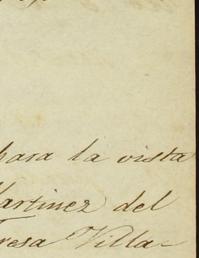 para la vista
Martinez del
resa Villa-